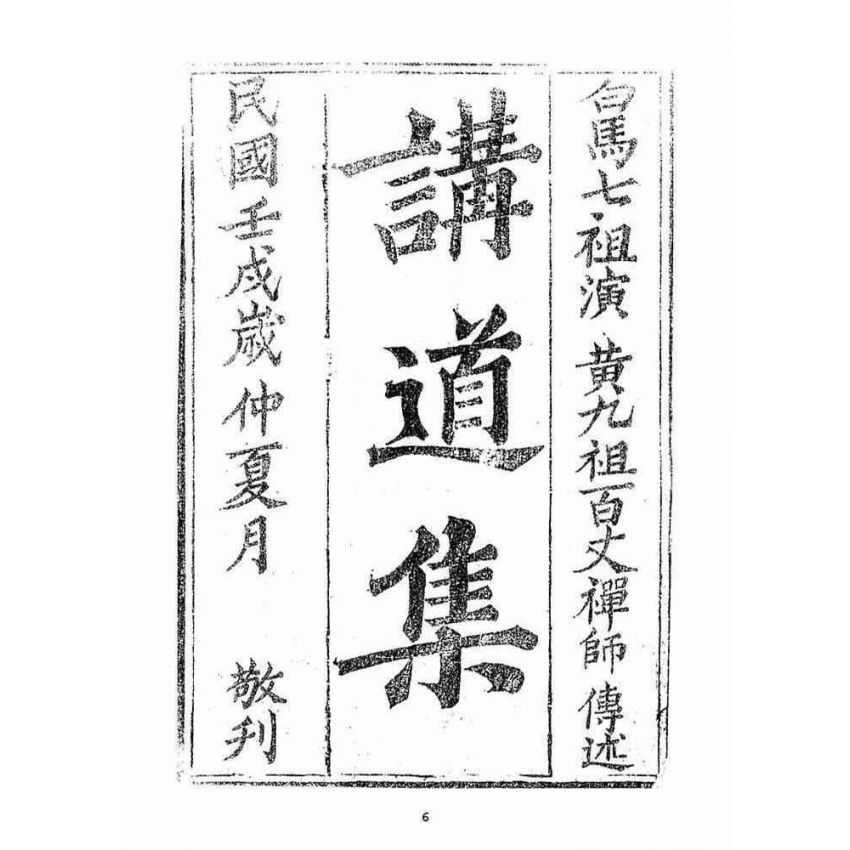 白馬七祖演 黄九祖百丈禪師 傳述
講道集
民國壬戌歲 仲夏月 敬刊
6